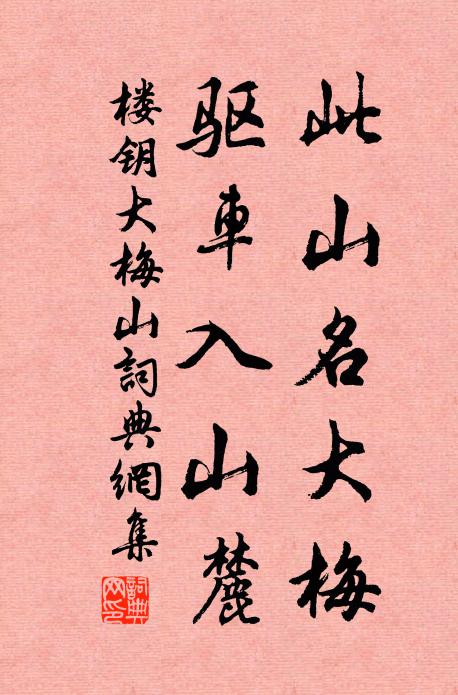 此山名大梅
驱車入山麓
楼钥大梅山詞典網集
詞典网印